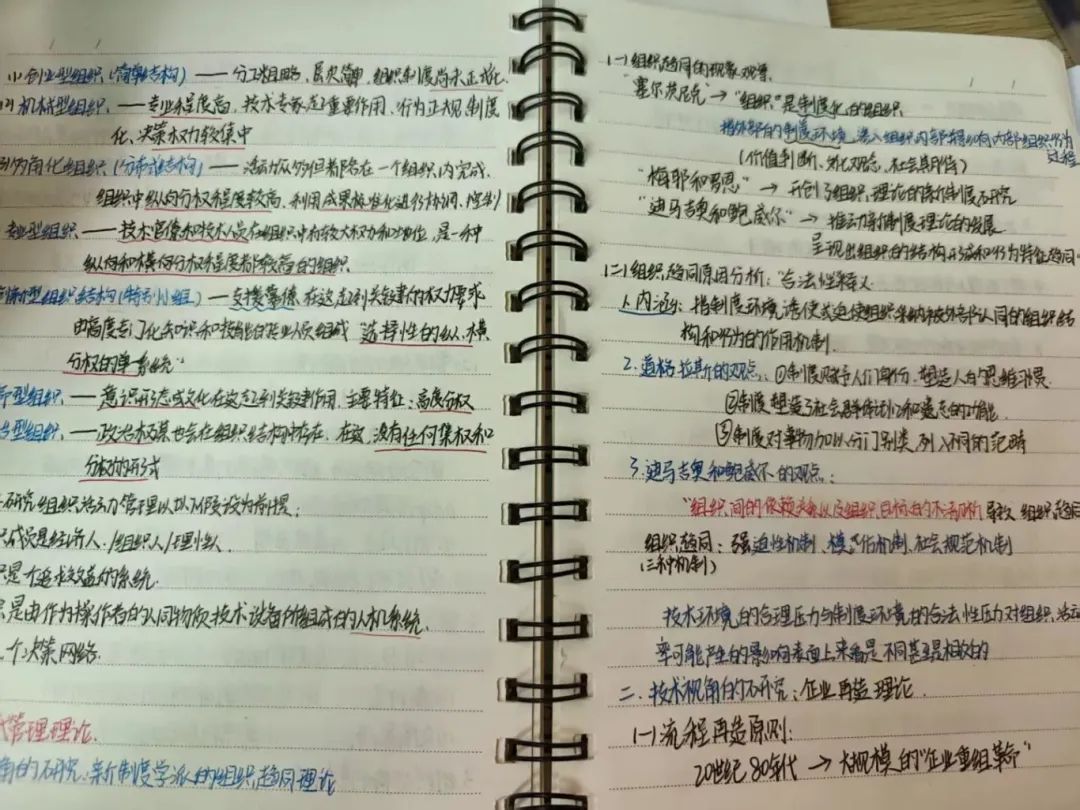 (1) 创业型组织(简单结构) —— 分工粗略、层次简单、组织制度尚未正规化.
(2) 机械型组织. —— 专业程度高、技术专家起重要作用、行为正规、制度
化、决策权力较集中
多角化组织(分部结构) —— 活动众多但都能在一个组织内完成.
组织中纵向分权程度较高、利用成果标准化进行协调、控制
专业型组织 —— 技术官僚和技术人员在组织中有较大权力和地位,是一种
纵向和横向分权程度都较高的组织.
新型组织结构(特别小组) —— 支援幕僚在这起到关键的权力要求
由高度专门化知识和技能的专业人员组成 选择性的纵、横
分权的单系统
型组织. —— 意识形态或文化在这起到关键作用. 主要特征:高度分权
型组织. —— 政治权谋也会在组织结构中存在、在这,没有任何集权和
分权的形式
研究组织活动管理以以下假设为前提:
成员是经济人./组织人/理性人.
是一个追求效益的系统.
是由作为操作者的人同物质技术设备所组成的人机系统.
个决策网络.
管理理论.
角的研究:新制度学派的组织趋同理论
(一) 组织趋同的现象观察.
“塞尔茨尼克” → “组织”是制度化的组织
指外部的制度环境渗入组织内部影响内部组织行为
过程
(价值判断、文化观念、社会期待)
“梅耶和罗恩” → 开创了组织理论的新制度研究
“迪马吉奥和鲍威尔” → 推动新制度理论的发展
呈现出组织的结构形式和行为特征趋同
(二) 组织趋同原因分析:合法性释义
1. 内涵:指制度环境诱使或迫使组织采纳被外部认同的组织结
构和行为的作用机制.
2. 道格拉斯的观点:①制度赋予人们身份、塑造人的思维习惯
②制度塑造了社会群体记忆和遗忘的功能.
③制度对事物加以分门别类、列入不同的范畴
3. 迪马吉奥和鲍威尔的观点:
“组织间的依赖关系以及组织目标的不清晰 导致组织趋同
组织趋同:强迫性机制、模仿机制、社会规范机制
(三种机制)
技术环境的合理压力与制度环境的合法性压力对组织活动
率可能产生的影响表面上来看是不同甚至相反的
二. 技术视角的研究:企业再造理论
(一) 流程再造原则:
20世纪80年代 → 大规模的“企业重组革命”